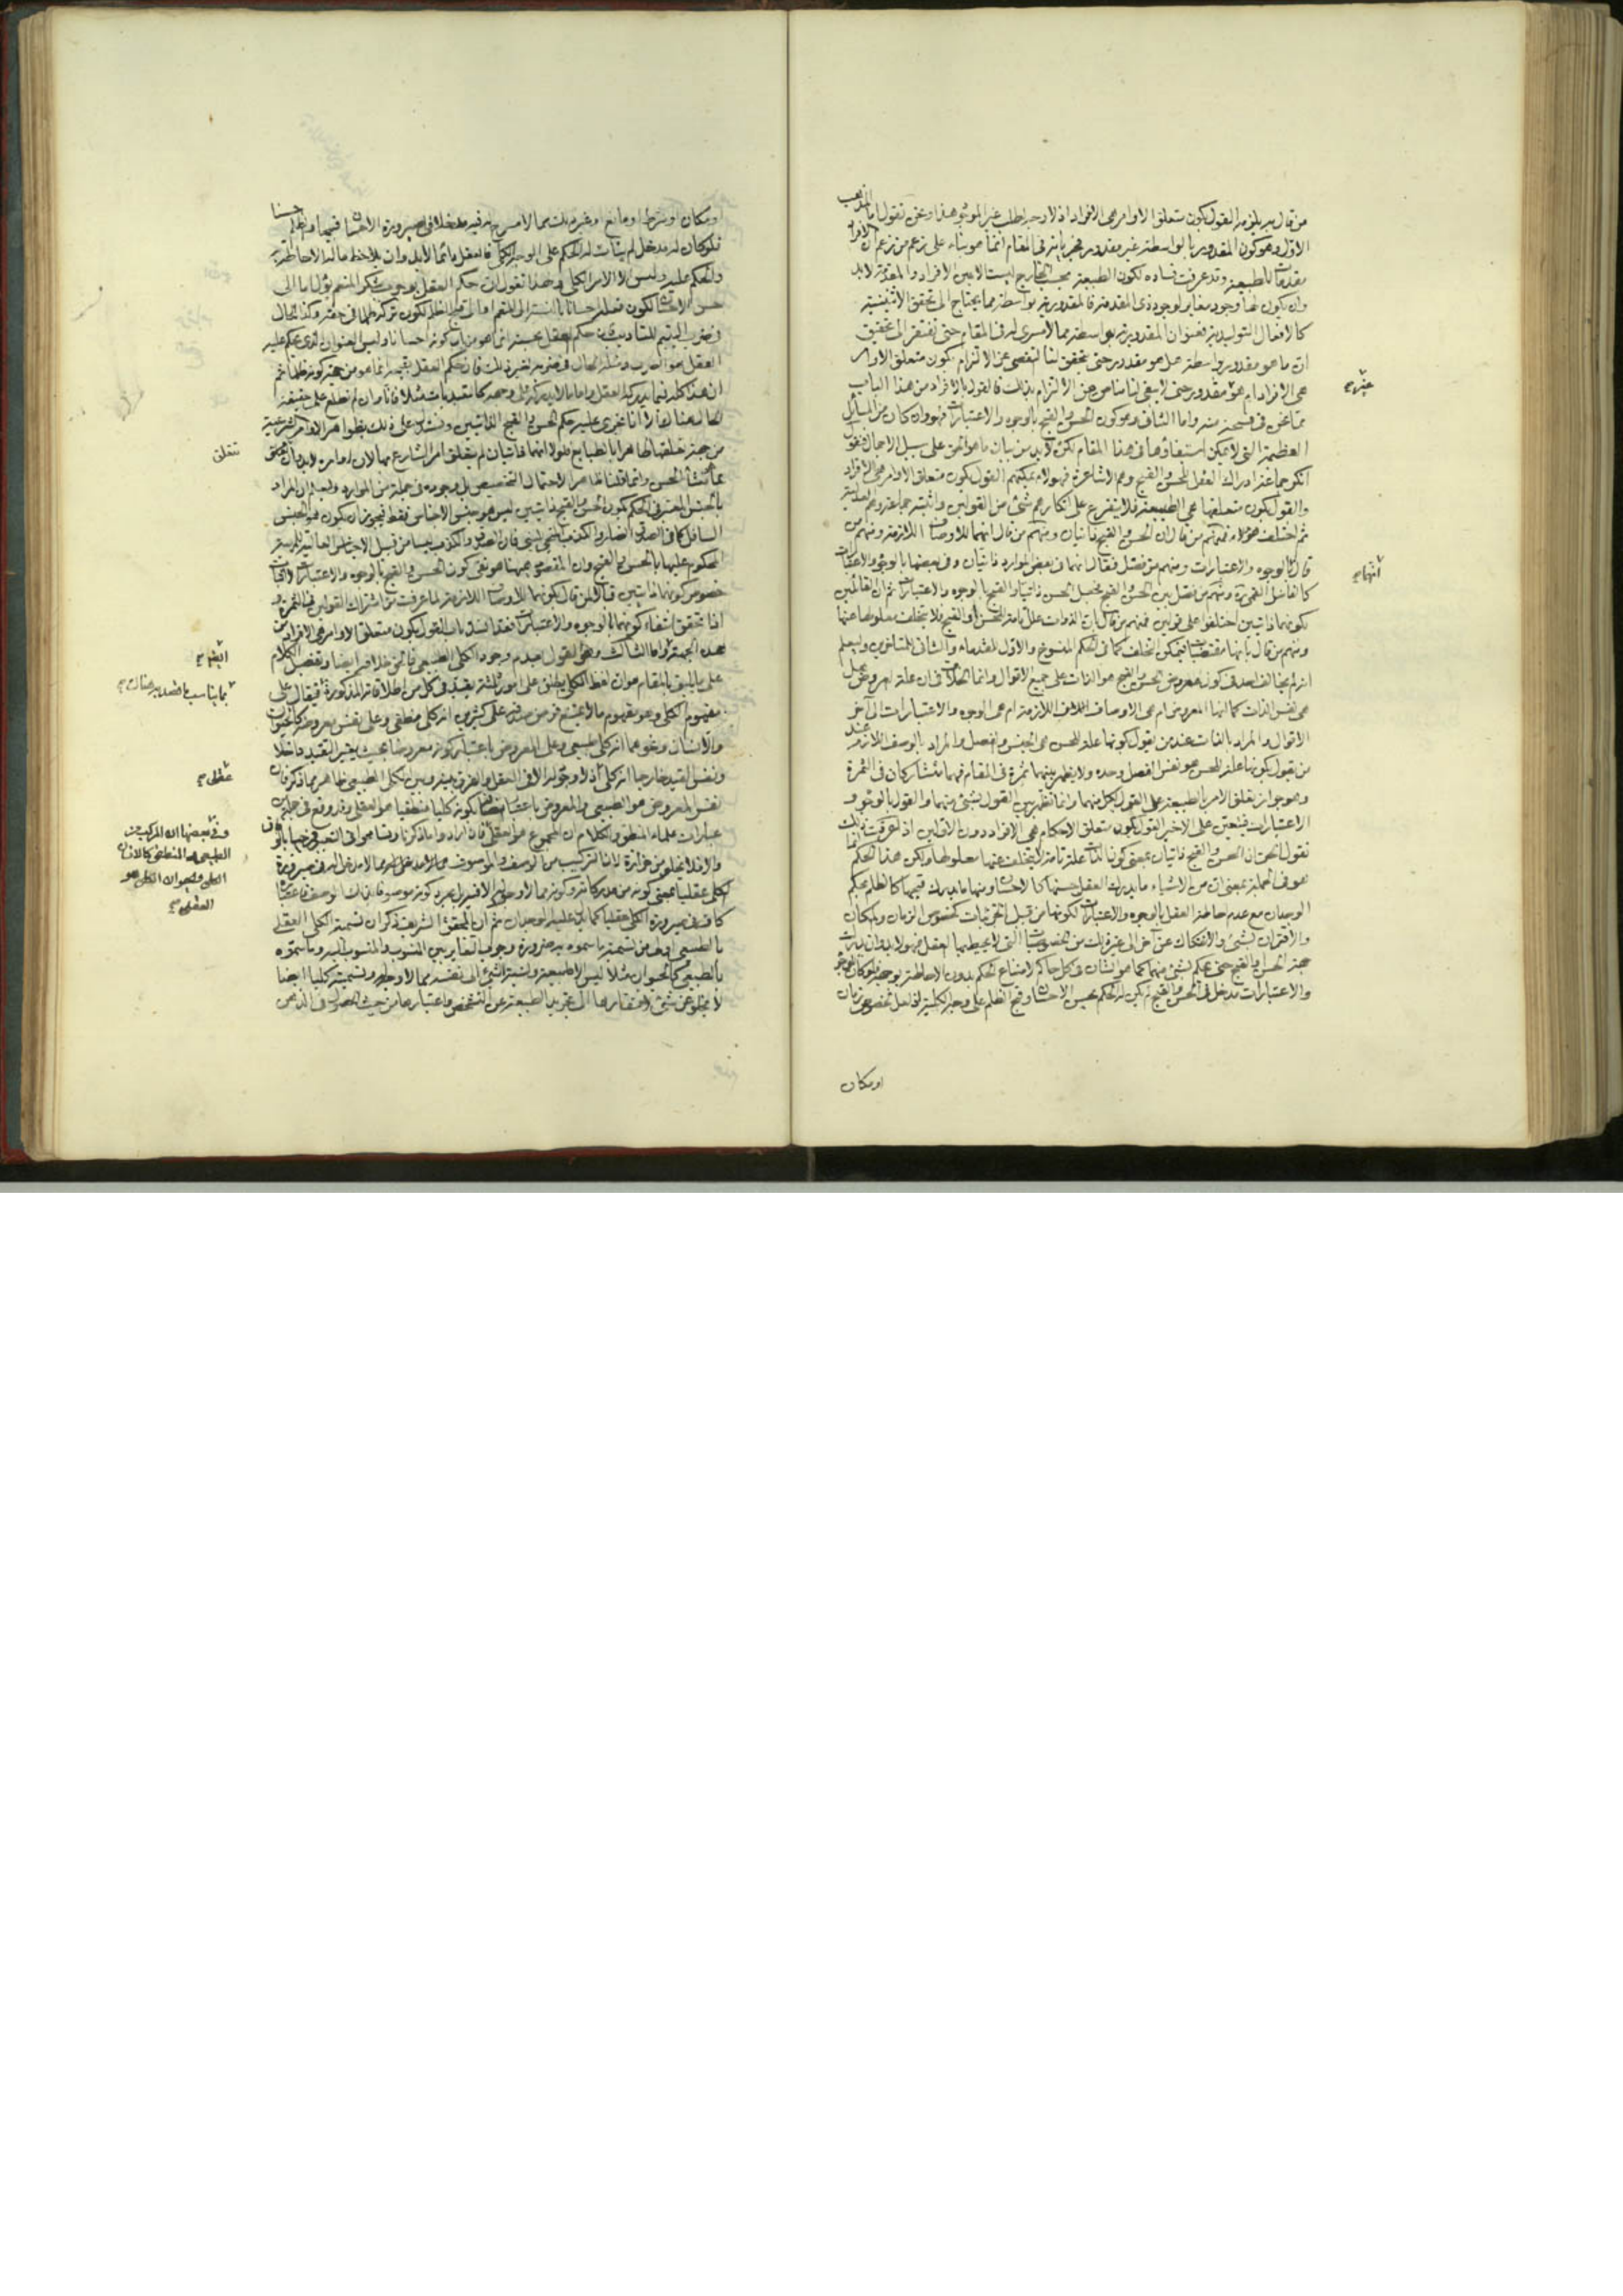 من قال به يلزمه القول بكون متعلق الاوامر هى الافراد اذ لا وجه لطلب غير الموجود هذا ونحن نقول اما
الاول وهو كون المقدور بالواسطة غير مقدور فجريانه فى المقام انما هو بناء على زعم من زعم ان الافراد
مقدمات للطبيعة وقد عرفت فساده لكون الطبيعة بحسب الخارج ليست الا عين الافراد والمقدمة لابد
وان يكون لها وجود مغاير لوجود ذى المقدمة فالمقدورية بواسطة مما يحتاج الى تحقق الاثنينية
كالافعال التوليدية فعنوان المقدورية بواسطة مما لا مسرى له فى المقام حتى نفتقر الى تحقيق
ان ما هو مقدور بواسطة هل هو مقدور حتى يتحقق لنا التفصى عن الالتزام بكون متعلق الاوامر
هى الافراد ام غير مقدور حتى لا يبقى لنا مناص عن الالتزام بذلك فالقول بالافراد من هذا الباب
مما نحن فى فسحة منه واما الثانى وهو كون الحسن والقبح بالوجوه والاعتبارات فهو وان كان من المسائل
العظيمة التى لا يمكن استيفاؤها فى هذا المقام لكن لابد من بيان ما هو الحق على سبيل الاجمال فنقول
انكر جماعة ادراك العقل للحسن والقبح وهم الاشاعرة فهؤلاء يمكنهم القول بكون متعلق الاوامر هى الافراد
والقول بكون متعلقها هى الطبيعة فلا يتفرع على انكارهم شئ من القولين واثبته جماعة وهم العدلية
ثم اختلف هؤلاء فمنهم من قال ان الحسن والقبح ذاتيان ومنهم من قال انهما للاوصاف اللازمة ومنهم من
قال بالوجوه والاعتبارات ومنهم من فصل فقال انهما فى بعض الموارد ذاتيان وفى بعضها بالوجوه والاعتبارات
كالفاضل القمى ره ومنهم من فصل بين الحسن والقبح فجعل الحسن ذاتيا والقبح بالوجوه والاعتبارات ثم ان القائلين
بكونهما ذاتيين اختلفوا على قولين فمنهم من قال بان الذوات علل تامة للحسن والقبح فلا يتخلف معلولها عنها
ومنهم من قال بانها مقتضيات فيمكن التخلف كما فى الحكم المنسوخ والاول للقدماء والثانى للمتاخرين وليعلم
انه لم يخالف احد فى كون معروض الحسن والقبح هو الذات على جميع الاقوال وانما الخلاف فى ان علة العروض هل
هى نفس الذات كما انها المعروض ام هى الاوصاف اللازمة ام هى الوجوه والاعتبارات الى آخر
الاقوال والمراد بالذات عند من يقول بكونها علة للحسن هى الجنس والفصل والمراد بالوصف اللازم عند
من يقول بكونها علة للحسن هو نفس الفصل وحده ولا يظهر بينهما ثمرة فى المقام فهما متشاركان فى الثمرة
وهو جواز تعلق الامر بالطبيعة على القول بكل منهما وانما تظهر بين القول بشئ منهما والقول بالوجوه و
الاعتبارات فيتعين على الاخير القول بكون متعلق الاحكام هى الافراد دون الاولين اذا عرفت ذلك
نقول الحق ان الحسن والقبح ذاتيان بمعنى كون الذات علة تامة لا يتخلف عنها معلولها ولكن هذا الحكم
هو فى الجملة بمعنى ان من الاشياء ما يدرك العقل حسنها كالاحسان ومنها ما يدرك قبحها كالظلم بحكم
الوجدان مع عدم احاطة العقل بالوجوه والاعتبارات لكونها من قبيل الجزئيات كخصوص الزمان والمكان
والاقتران بشئ والانفكاك عن آخر الى غير ذلك من الخصوصيات التى لا يحيط بها العقل فهو لابد وان يدرك
جهة الحسن والقبح حتى يحكم بشئ منهما كما هو الشان فى كل حاكم لامتناع الحكم بدون الاحاطة بوجه فلو كان للوجوه
والاعتبارات مدخل فى الحسن والقبح لم يكن له الحكم بحسن الاحسان وقبح الظلم على وجه الكلية لو احتمل خصوص زمان
او مكان
او مكان او شرط او مانع او غير ذلك مما لا مسرح له فيه مدخلا فى صيرورة الاحسان قبيحا والظلم حسنا
فلو كان له مدخل لم يتات له الحكم على الوجه الكلى فالعقل دائما لابد وان يلاحظ ما له الاحاطة به
والحكم عليه وليس الا الامر الكلى ولهذا نقول ان حكم العقل بوجوب شكر المنعم يؤل ما الى
حسن الاحسان لكون فعله احسانا بالنسبة الى المنعم او الى قبح الظلم لكون تركه ظلما فى حقه وكذا الحال
فى ضرب اليتيم للتاديب فان حكم العقل بحسنه انما هو من باب كونه احسانا وليس العنوان الذى يحكم عليه
العقل هو الضرب ومثله الحال فى ضربه لغير ذلك فان حكم العقل بقبحه انما هو من جهة كونه ظلما ثم
ان هذا كله فيما يدركه العقل واما ما لا يدركه على وجهه كالتعبديات مثلا فانا وان لم نطلع على حقيقة
الحال هنا لكنا نجرى عليه حكم الحسن والقبح الذاتيين ونستدل على ذلك بظواهر الاوامر الشرعية
من جهة تعلقها ظاهرا بالطبايع فلولا انهما ذاتيان لم يتعلق امر الشارع بها لان اوامره لابد وان تتعلق
بما هو منشأ الحسن وانما قلنا ظاهرا لاحتمال التخصيص بل وجوده فى جملة من الموارد وليعلم ان المراد
بالجنس المعتبر فى الحكم بكون الحسن والقبح ذاتيين ليس هو جنس الاجناس فقط فيجوز ان يكون هو الجنس
السافل كما فى الصدق الضار والكذب المنجى لنبى فان الصدق والكذب ليسا من قبيل الاجناس العالية للمرتبة
المحكوم عليها بالحسن والقبح وان المقصود هيهنا هو نفى كون الحسن والقبح بالوجوه والاعتبارات لا اثبات
خصوص كونهما ذاتيين قبال من قال بكونهما للاوصاف اللازمة لما عرفت من اشتراك القولين فى الثمرة و
اذا تحقق انتفاء كونهما بالوجوه والاعتبارات انقد انسد باب القول بكون متعلق الاوامر هى الافراد من
هذه الجهة واما الثالث وهو القول بعدم وجود الكلى الطبيعى فالحق خلافه ايضا وتفصيل الكلام
على ما يليق بالمقام هو ان لفظ الكلى يطلق على امور ثلثة يقيد فى كل من اطلاقاته المذكورة فيقال على
مفهوم الكلى وهو مفهوم ما لا يمتنع فرض صدقه على كثيرين انه كلى منطقى وعلى نفس معروضه كالحيوان
والانسان ونحوهما انه كلى طبيعى وعلى المعروض باعتبار كونه معروضا بحيث يعتبر التقييد داخلا
ونفس القيد خارجا انه كلى اذ لا وجود له الا فى العقل والفرق بينه وبين الكلى الطبيعى ظاهر مما ذكر فان
نفس المعروض هو الطبيعى والمعروض باعتبار اتصافه بكونه كليا منطقيا هو العقلى وقد وقع فى جملة من
عبارات علماء المنطق والكلام ان المجموع هو العقلى فان ارادوا ما ذكرنا وتسامحوا فى التعبير فمرحبا بالوفاق
والا فلا يخلو من حزازة لان التركيب من الوصف والموصوف مما لا مدخل له مما لا مدخل له فى صيرورة
الكلى عقليا بمعنى كونه من مدركاته وكونه مما لا وجود له الا فيه بل مجرد كونه موصوفا بذلك الوصف الاعتبارى
كاف فى صيرورة الكلى عقليا كما يدل عليه الوجدان ثم ان المحقق الشريف ذكر ان تسمية الكلى العقلى
بالطبيعى اولى من تسمية ما سموه به ضرورة وجوب التغاير بين المنسوب والمنسوب اليه وما سموه
بالطبيعى كالحيوان مثلا ليس الا الطبيعة ونسبة الشئ الى نفسه مما لا وجه له وتسميته كليا ايضا
لا يخلو عن شئ لافتقارها الى تجريد الطبيعة عن التشخص واعتبارها من حيث الحصول فى الذهن
غير صح
انهما صح
تتعلق
ايضا صح
بما يناسب ما قصد به هناك صح
عقلى صح
وفى بعضها ان المركب من
الطبيعى والمنطقى كالانسان
الكلى والحيوان الكلى هو
العقلى صح